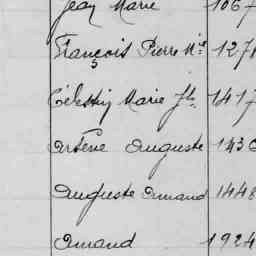 Jean Marie 1067
François Pierre Mie 127
Célestin Marie Jh 1417
Arsène Auguste 143
Auguste Amand 1448
Amand 1924